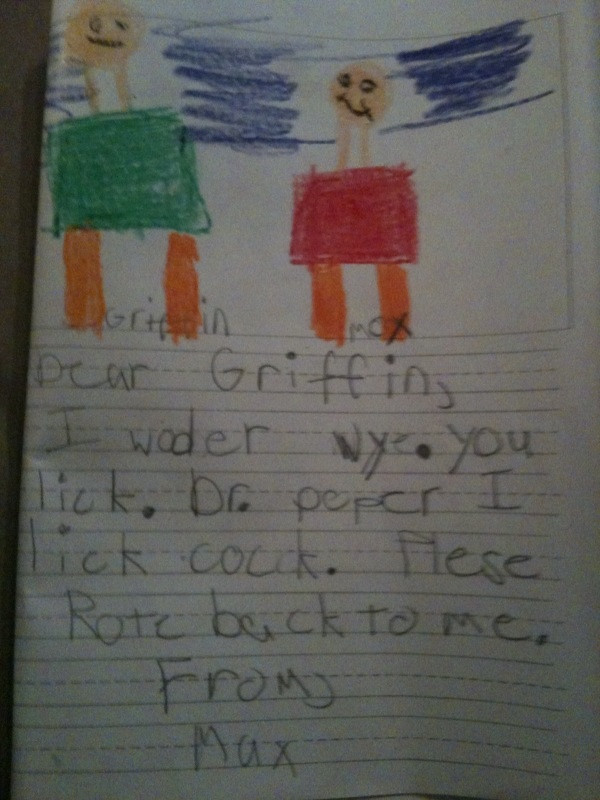 Griffin Max
Dear Griffin,
I woder wye. you
lick. Dr. peper I
lick couk. Plese
Rote back to me.
From,
Max